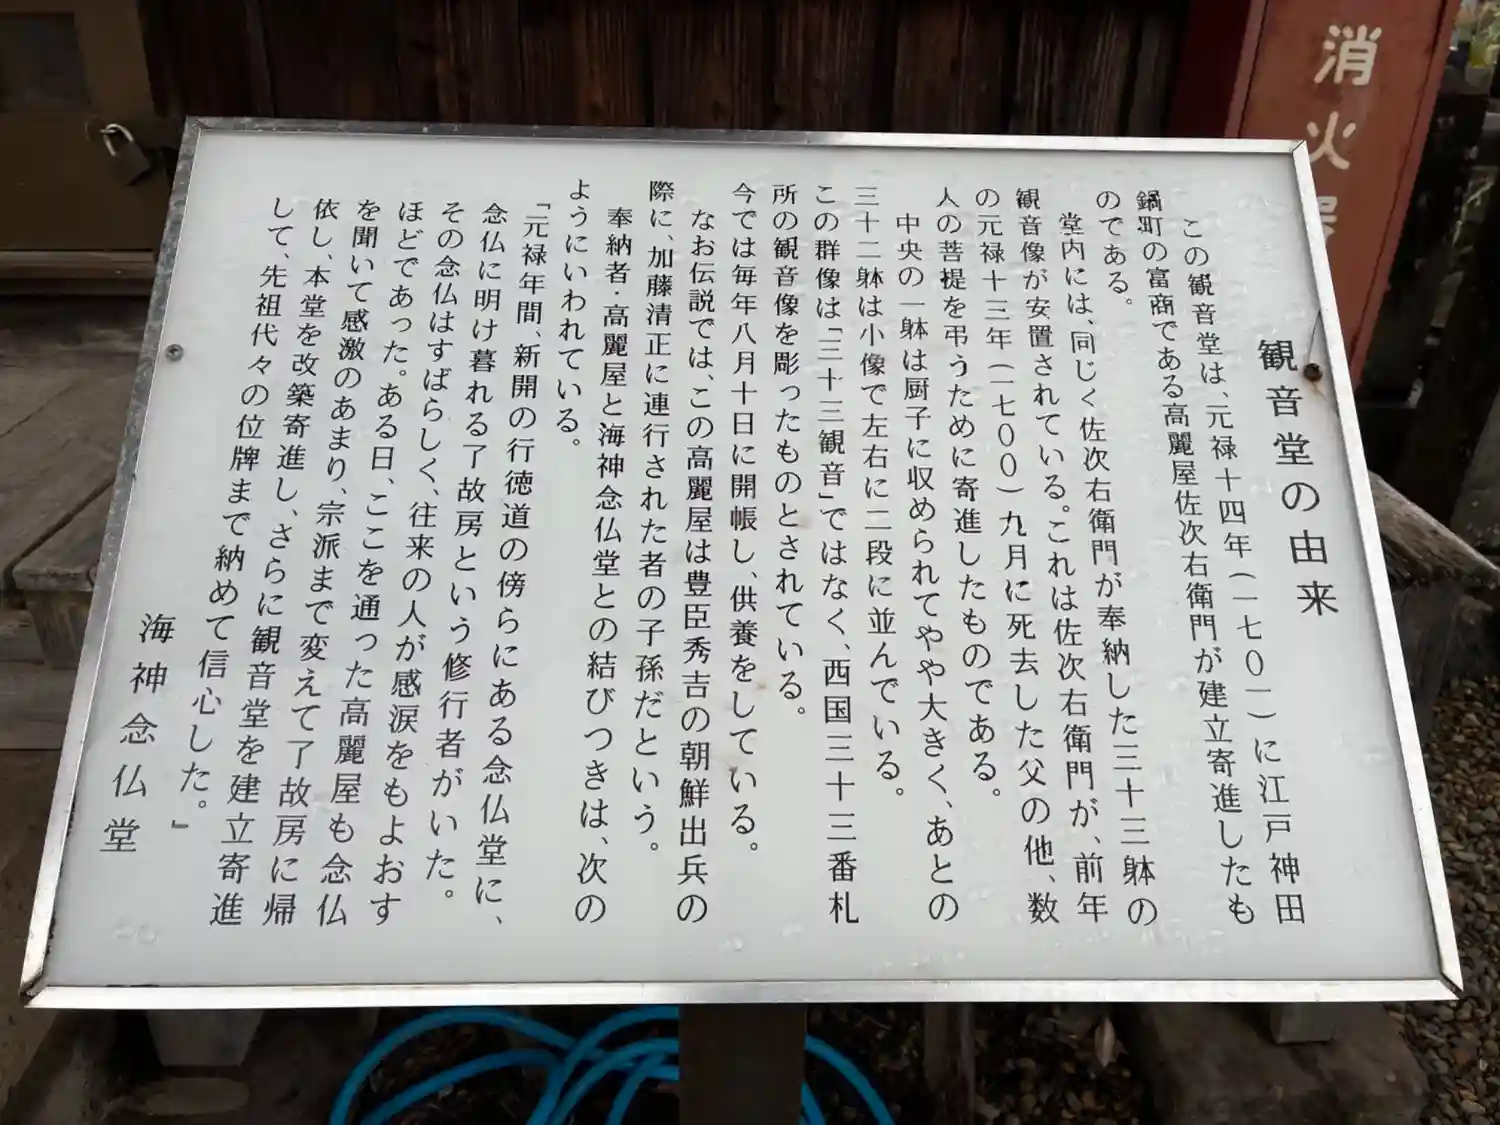 観音堂の由来
この観音堂は、元禄十四年(一七〇一)に江戸神田
鍋町の富商である高麗屋佐次右衛門が建立寄進したも
のである。
堂内には、同じく佐次右衛門が奉納した三十三躰の
観音像が安置されている。これは佐次右衛門が、前年
の元禄十三年(一七〇〇)九月に死去した父の他、数
人の菩提を弔うために寄進したものである。
中央の一躰は厨子に収められてやや大きく、あとの
三十二躰は小像で左右に二段に並んでいる。
この群像は「三十三観音」ではなく、西国三十三番札
所の観音像を彫ったものとされている。
今では毎年八月十日に開帳し、供養をしている。
なお伝説では、この高麗屋は豊臣秀吉の朝鮮出兵の
際に、加藤清正に連行された者の子孫だという。
奉納者・高麗屋と海神念仏堂との結びつきは、次の
ようにいわれている。
「元禄年間、新開の行徳道の傍らにある念仏堂に、
念仏に明け暮れる了故房という修行者がいた。
その念仏はすばらしく、往来の人が感涙をもよおす
ほどであった。ある日、ここを通った高麗屋も念仏
を聞いて感激のあまり、宗派まで変えて了故房に帰
依し、本堂を改築寄進し、さらに観音堂を建立寄進
して、先祖代々の位牌まで納めて信心した。」
海神念仏堂
消火